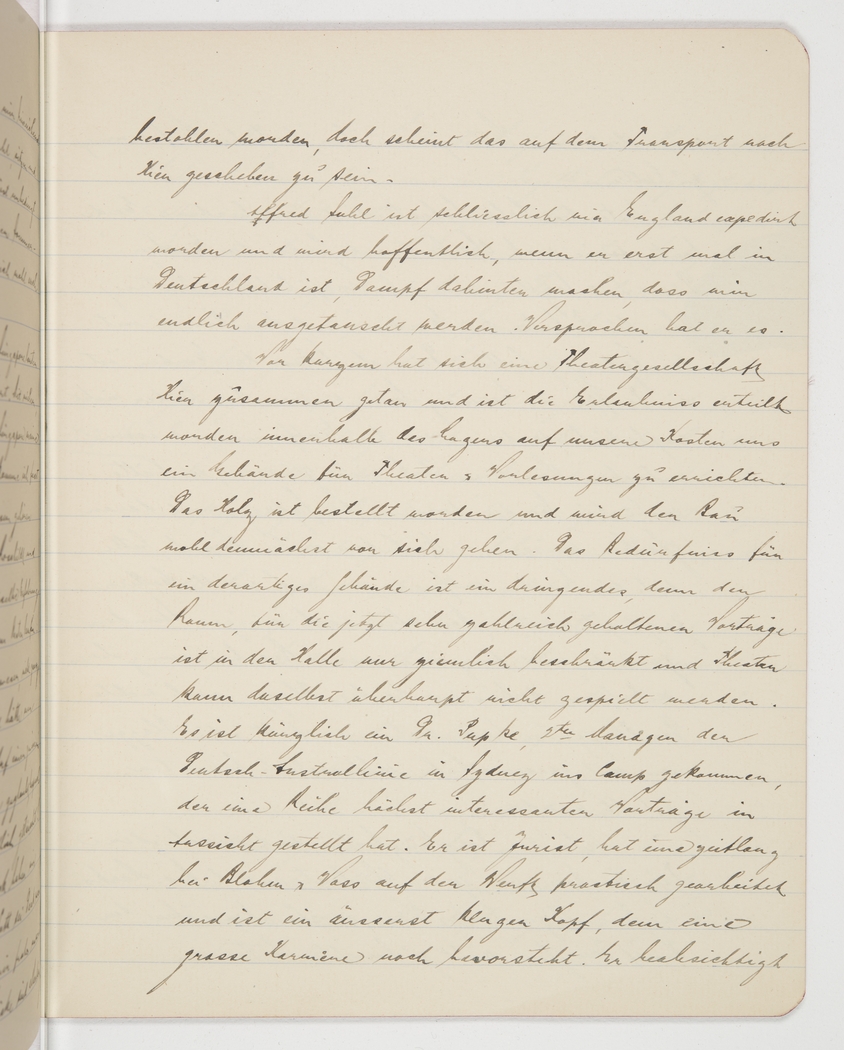 bestohlen worden, doch scheint das auf dem Transport nach
hier geschehen zu sein.
Alfred Suhl ist schliesslich via England expedirt
worden und wird hoffentlich, wenn er erst mal in
Deutschland ist, Dampf dahinter machen, dass wir
endlich ausgetauscht werden. Versprochen hat er es.
Vor kurzem hat sich eine Theatergesellschaft
hier zusammen getan und ist die Erlaubniss erteilt
worden innerhalb des Lagers auf unsere Kosten uns
ein Gebäude für Theater & Vorlesungen zu errichten.
Das Holz ist bestellt worden und wird der Bau
wohl demnächst vor sich gehen. Das Bedürfniss für
ein derartiges Gebäude ist ein dringendes, denn der
Raum, für die jetzt sehr zahlreich gehaltenen Vorträge
ist in der Halle nur ziemlich beschränkt und Theater
kann daselbst überhaupt nicht gespielt werden.
Es ist kürzlich ein Dr. Pupke, 2ter Manager der
Deutsch-Australlinie in Sydney ins Camp gekommen,
der eine Reihe höchst interessanter Vorträge in
Aussicht gestellt hat. Er ist Jurist, hat eine zeitlang
bei Blohm & Voss auf der Werft practisch gearbeitet
und ist ein äusserst kluger Kopf, dem eine
grosse Karriere noch bevorsteht. Er beabsichtigt